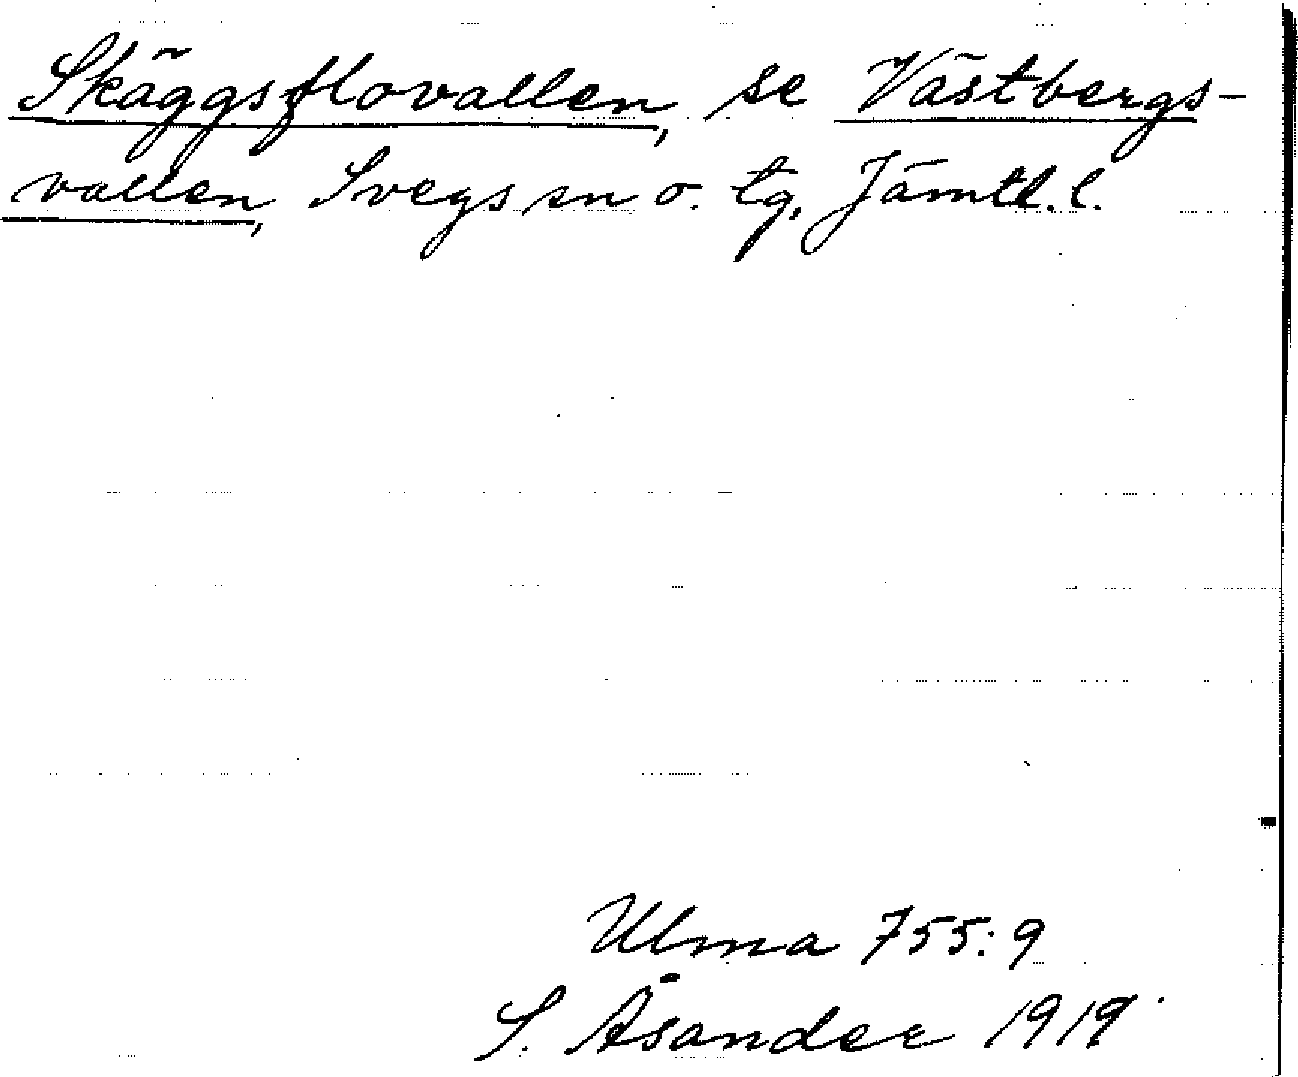 Skäggsflovallen, se Västbergs-
vallen, Svegs sn o. tg, Jämtl. l.
Ulma 755:9
S. Åsander 1919